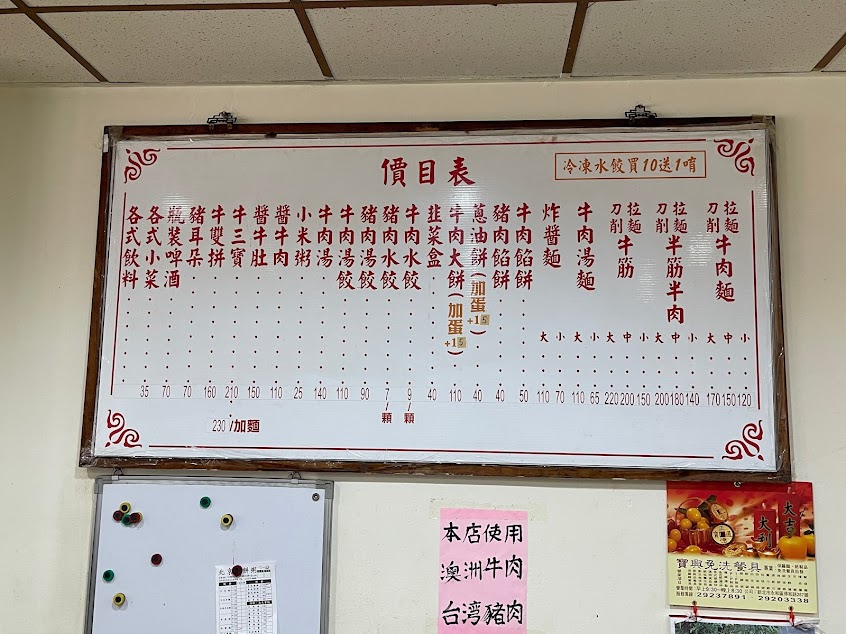 價目表
冷凍水餃買10送1唷
拉麵 刀削 牛肉麵 大170 中150 小120
拉麵 刀削 半筋半肉 大200 中180 小140
拉麵 刀削 牛筋 大220 中200 小150
牛肉湯麵 大110 小65
炸醬麵 大110 小70
牛肉餡餅 50
豬肉餡餅 40
蔥油餅(加蛋+15) 40
牛肉大餅(加蛋+15) 110
韭菜盒 40
牛肉水餃 9/顆
豬肉水餃 7/顆
豬肉湯餃 90
牛肉湯餃 110
牛肉湯 140
小米粥 25
醬牛肉 110
醬牛肚 150
牛三寶 210 230/加麵
牛雙拼 160
豬耳朵 70
瓶裝啤酒 70
各式小菜 35
各式飲料
本店使用
澳洲牛肉
台灣豬肉
大吉
大利
免洗餐具
29237891
29203338